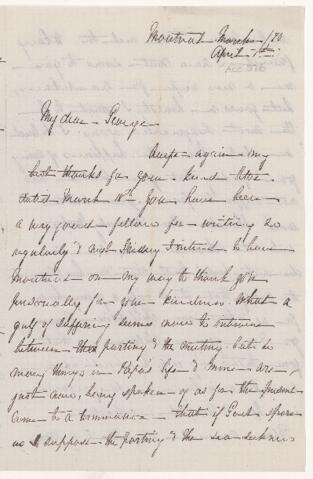 Montreal March /70
April 1st
ACC 558
My dear George
Accept again my
best thanks for your kind letter
dated March 11th You have been
a very good fellow for writing so
regularly & next Friday I intend to have
on my way to thank you
personally for your kindness. What a
gulf of suffering seems now to intervene
between the parting & the meeting but so
many things in Papa's life & mine are
just now, being spoken of as for the present
come to a termination that if God spares
us I suppose the parting & the sea sickness